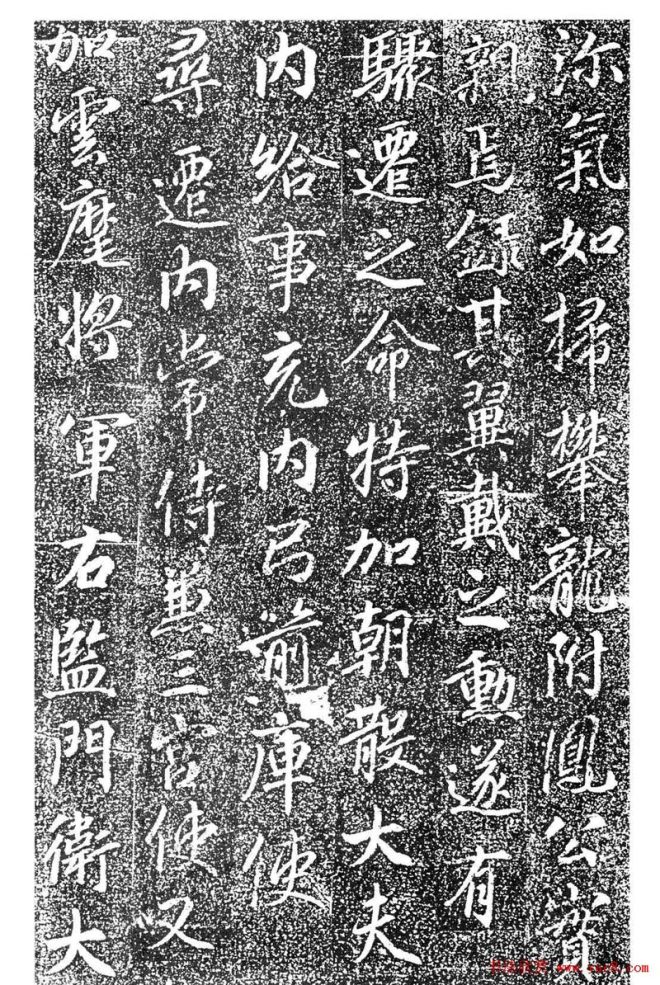 沵氣如掃攀龍附鳳公實
親焉錄其翼戴之勳遂有
驟遷之命特加朝散大夫
內給事充內弓箭庫使
尋遷內常侍兼三宮使又
加雲麾將軍右監門衛大